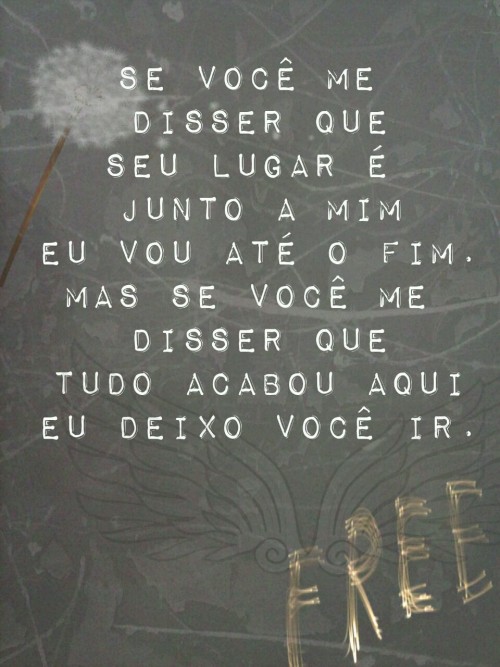 SE VOCÊ ME
DISSER QUE
SEU LUGAR É
JUNTO A MIM
EU VOU ATÉ O FIM.
MAS SE VOCÊ ME
DISSER QUE
TUDO ACABOU AQUI
EU DEIXO VOCÊ IR.
FREE